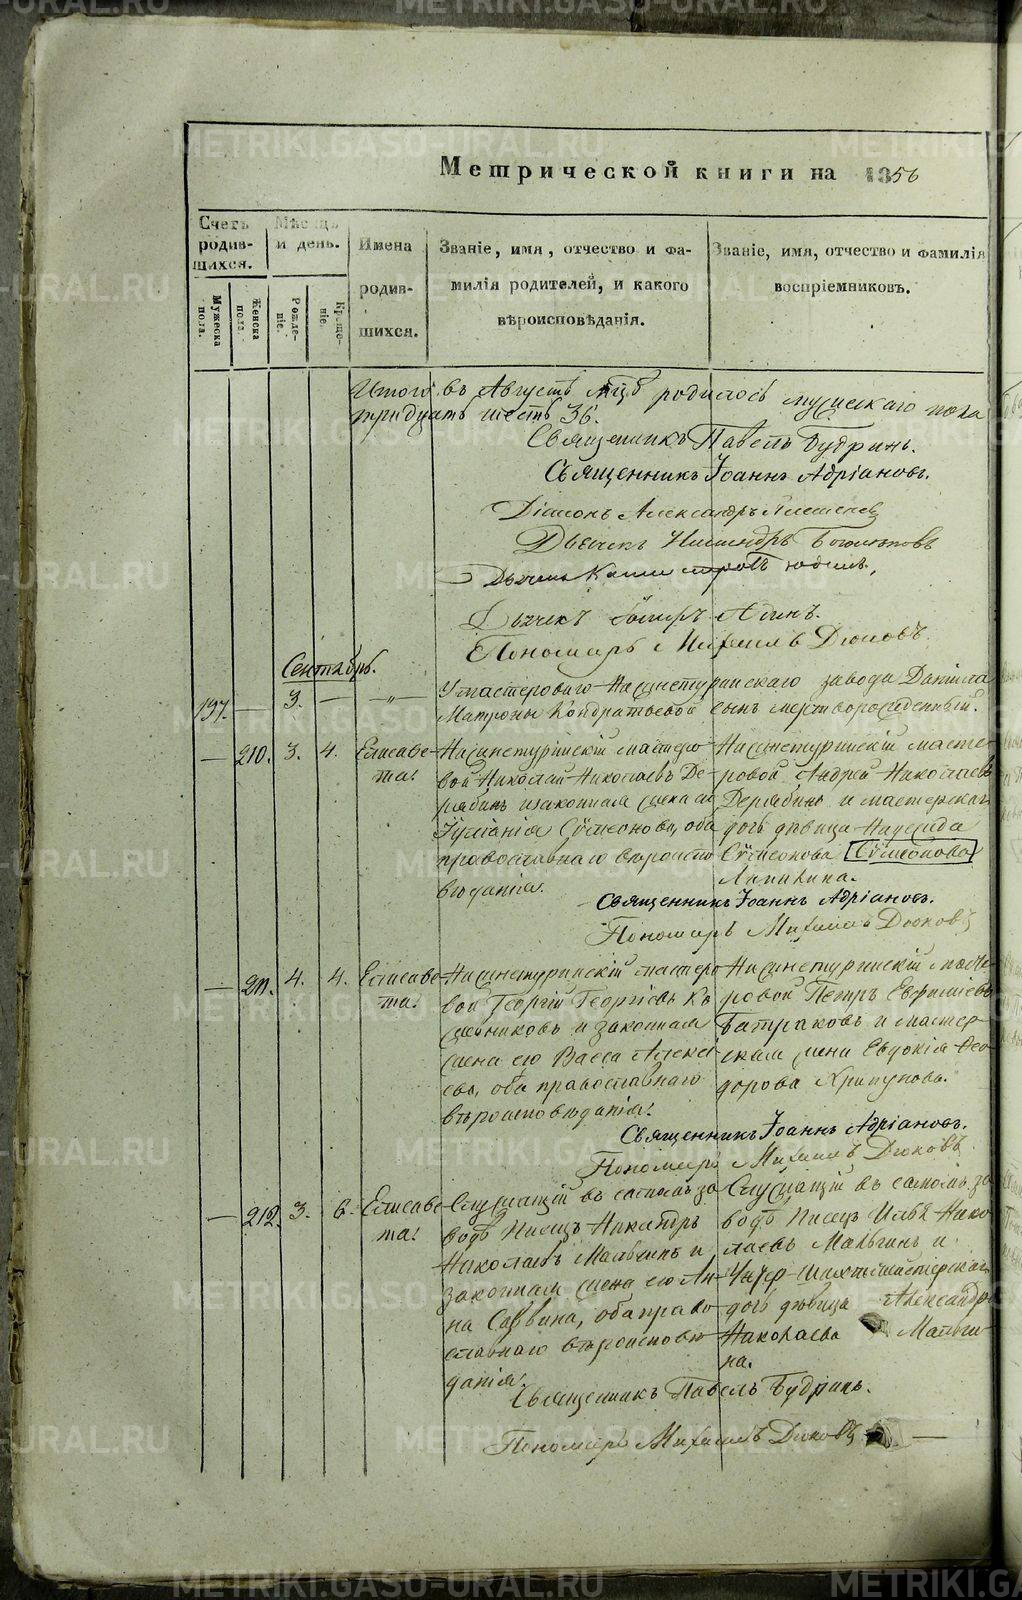 METRIKI.GASO-URAL.RU
Метрической книги на 1856
Счетъ родив-шихся.
Мѣсяцъ и день.
Имена родив-шихся.
Званіе, имя, отчество и фа-
милія родителей, и какого
вѣроисповѣданія.
Званіе, имя, отчество и фамилія
воспріемниковъ.
Мужеска пола.
Женска пола.
Рожде-ніе.
Креще-ніе.
Итого въ Августѣ мцѣ родилось мужескаго пола
тридцать шесть 36.
Священникъ Павелъ Будринъ.
Священникъ Іоаннъ Адріановъ.
Діаконъ Александръ
Дьячекъ
Дьячекъ
Дьячекъ
Пономарь Михаилъ Дюковъ.
Сентябрь.
137. — 3. — — „ —
У мастероваго Нижнетуринскаго завода Даніила
Матроны Кондратьевой сынъ мертворожденный.
— 210. 3. 4. Елисаве-
та.
Нижнетуринскій мастеро-
вой Николай Николаевъ Де-
рябинъ и законная жена его
Іуліанія Сѵмеонова, оба
православнаго вѣроиспо-
вѣданія.
Нижнетуринскій масте-
ровой Андрей Николаевъ
Дерябинъ и мастерская
дочь дѣвица Надежда
Сѵмеонова Сѵмеонова
Священникъ Іоаннъ Адріановъ.
Пономарь Михаилъ Дюковъ
— 211. 4. 4. Елисаве-
та.
Нижнетуринскій мастеро-
вой Георгій Георгіевъ Ко-
и законная
жена его Васса Алексі-
ева, оба православнаго
вѣроисповѣданія.
Нижнетуринскій масте-
ровой Петръ Евѳиміевъ
Батраковъ и мастер-
ская жена Евдокія Ѳео-
дорова Хрипунова.
Священникъ Іоаннъ Адріановъ.
Пономарь Михаилъ Дюковъ
— 212. 3. 6. Елисаве-
та.
Служащій въ самомъ за-
водѣ писецъ Никандръ
Николаевъ Мальгинъ и
законная жена его Ан-
на Саввина, оба право-
славнаго вѣроисповѣ-
данія.
Служащій въ самомъ за-
водѣ писецъ Илья Нико-
лаевъ Мальгинъ и
Унтер-шихтмейстерская
дочь дѣвица Александра
Николаева Мальги-
на.
Священникъ Павелъ Будринъ.
Пономарь Михаилъ Дюковъ